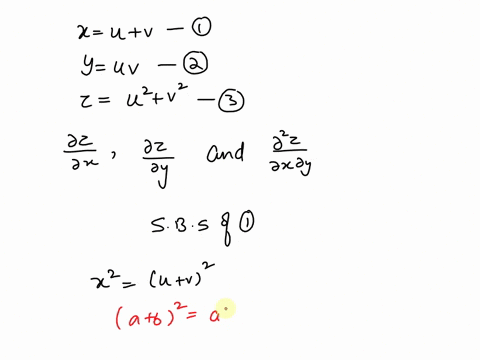 x = u+v — ①
y = uv — ②
z = u²+v² — ③
∂z/∂x , ∂z/∂y and ∂²z/∂x∂y
S.B.S of ①
x² = (u+v)²
(a+b)² = a